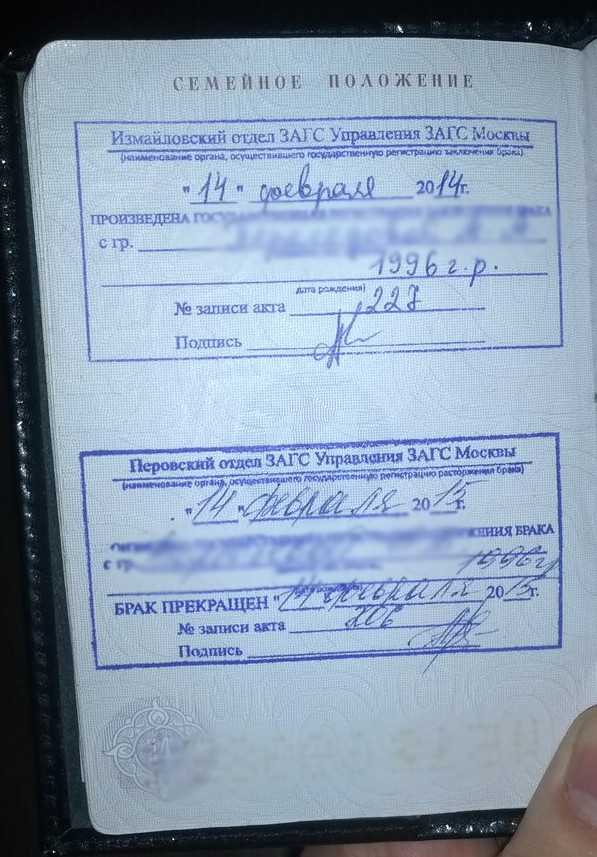 СЕМЕЙНОЕ ПОЛОЖЕНИЕ
Измайловский отдел ЗАГС Управления ЗАГС Москвы
(наименование органа, осуществившего государственную регистрацию заключения брака)
"14" февраля 2014г.
ПРОИЗВЕДЕНА БРАКА
с гр.
1996 г.р.
дата рождения)
№ записи акта 227
Подпись
Перовский отдел ЗАГС Управления ЗАГС Москвы
(наименование органа, осуществившего государственную регистрацию расторжения брака)
"14" февраля 2015г.
БРАКА
с гр. 1996г
БРАК ПРЕКРАЩЕН "14" февраля 2015г.
№ записи акта 206
Подпись